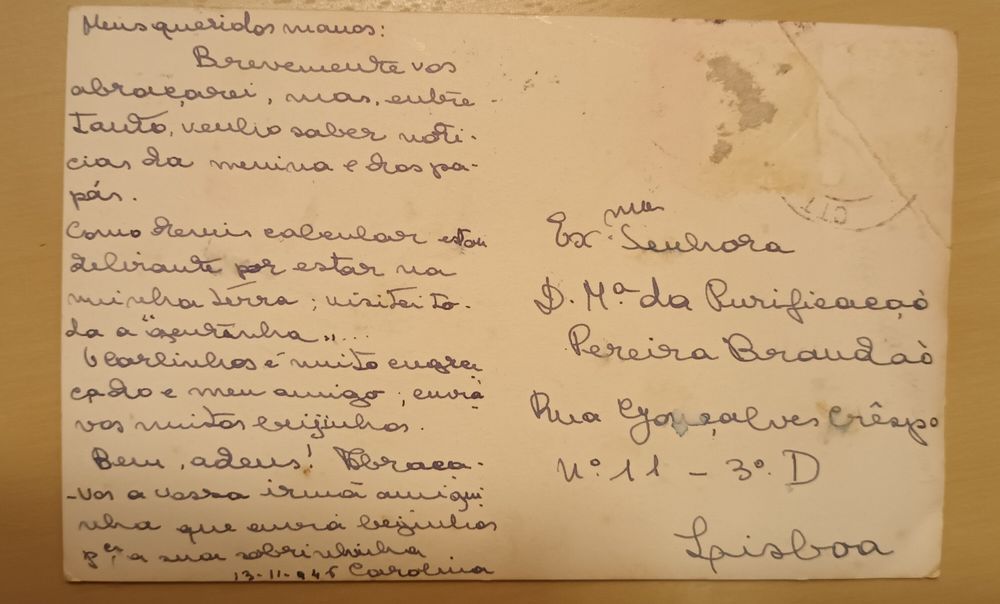 Meus queridos manos:
Brevemente vos
abraçarei, mas, entre-
tanto, venho saber noti-
cias da menina e dos pa-
pás.
Como deveis calcular estou
delirante por estar na
minha terra; visitei to-
da a "gentinha"...
O Carlinhos é muito engra
çado e meu amigo; envia
vos muitos beijinhos.
Bem, adeus! Abraça-
-vos a vossa irmã amigui
nha que envia beijinhos
pª a sua sobrinhinha
13-11-946 Carolina
CTT
Ex.ma Senhora
D. Mª da Purificação
Pereira Brandão
Rua Gonçalves Crêspo
Nº 11 - 3º. D
Lisboa